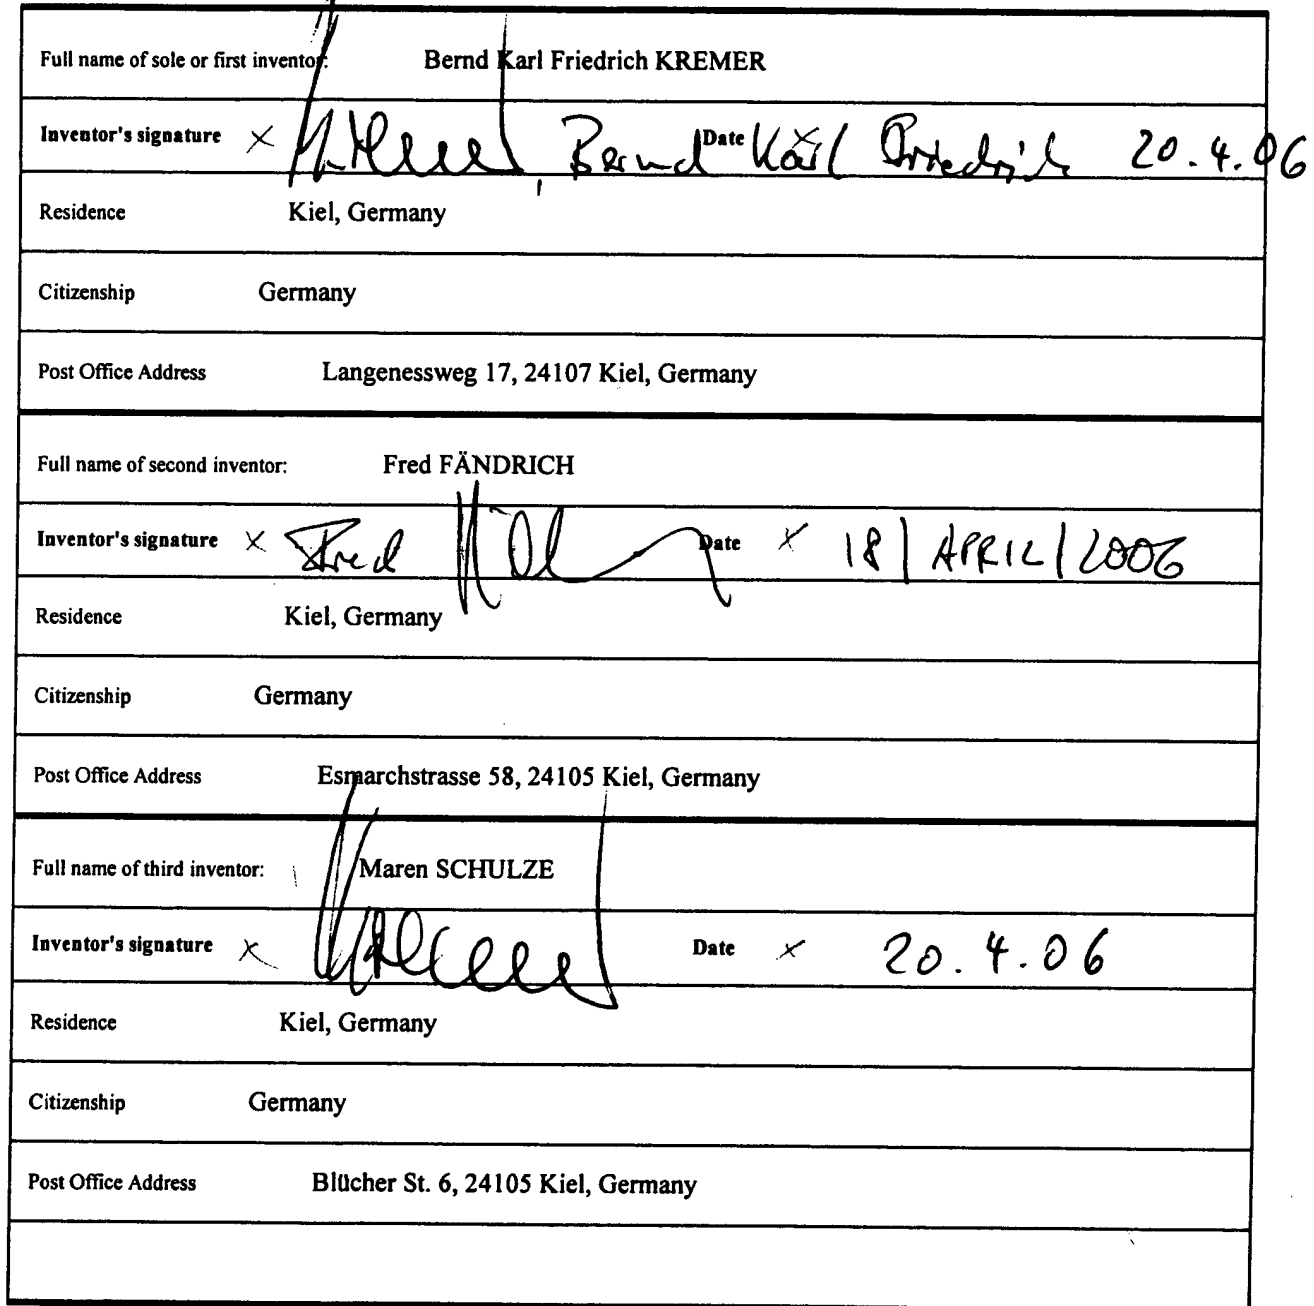 Full name of sole or first inventor: Bernd Karl Friedrich KREMER
Inventor's signature × , Bernd Date Karl × Friedrich 20.4.06
Residence Kiel, Germany
Citizenship Germany
Post Office Address Langenessweg 17, 24107 Kiel, Germany
Full name of second inventor: Fred FÄNDRICH
Inventor's signature × Fred Date × 18 / APRIL / 2006
Residence Kiel, Germany
Citizenship Germany
Post Office Address Esmarchstrasse 58, 24105 Kiel, Germany
Full name of third inventor: Maren SCHULZE
Inventor's signature × Date × 20.4.06
Residence Kiel, Germany
Citizenship Germany
Post Office Address Blücher St. 6, 24105 Kiel, Germany